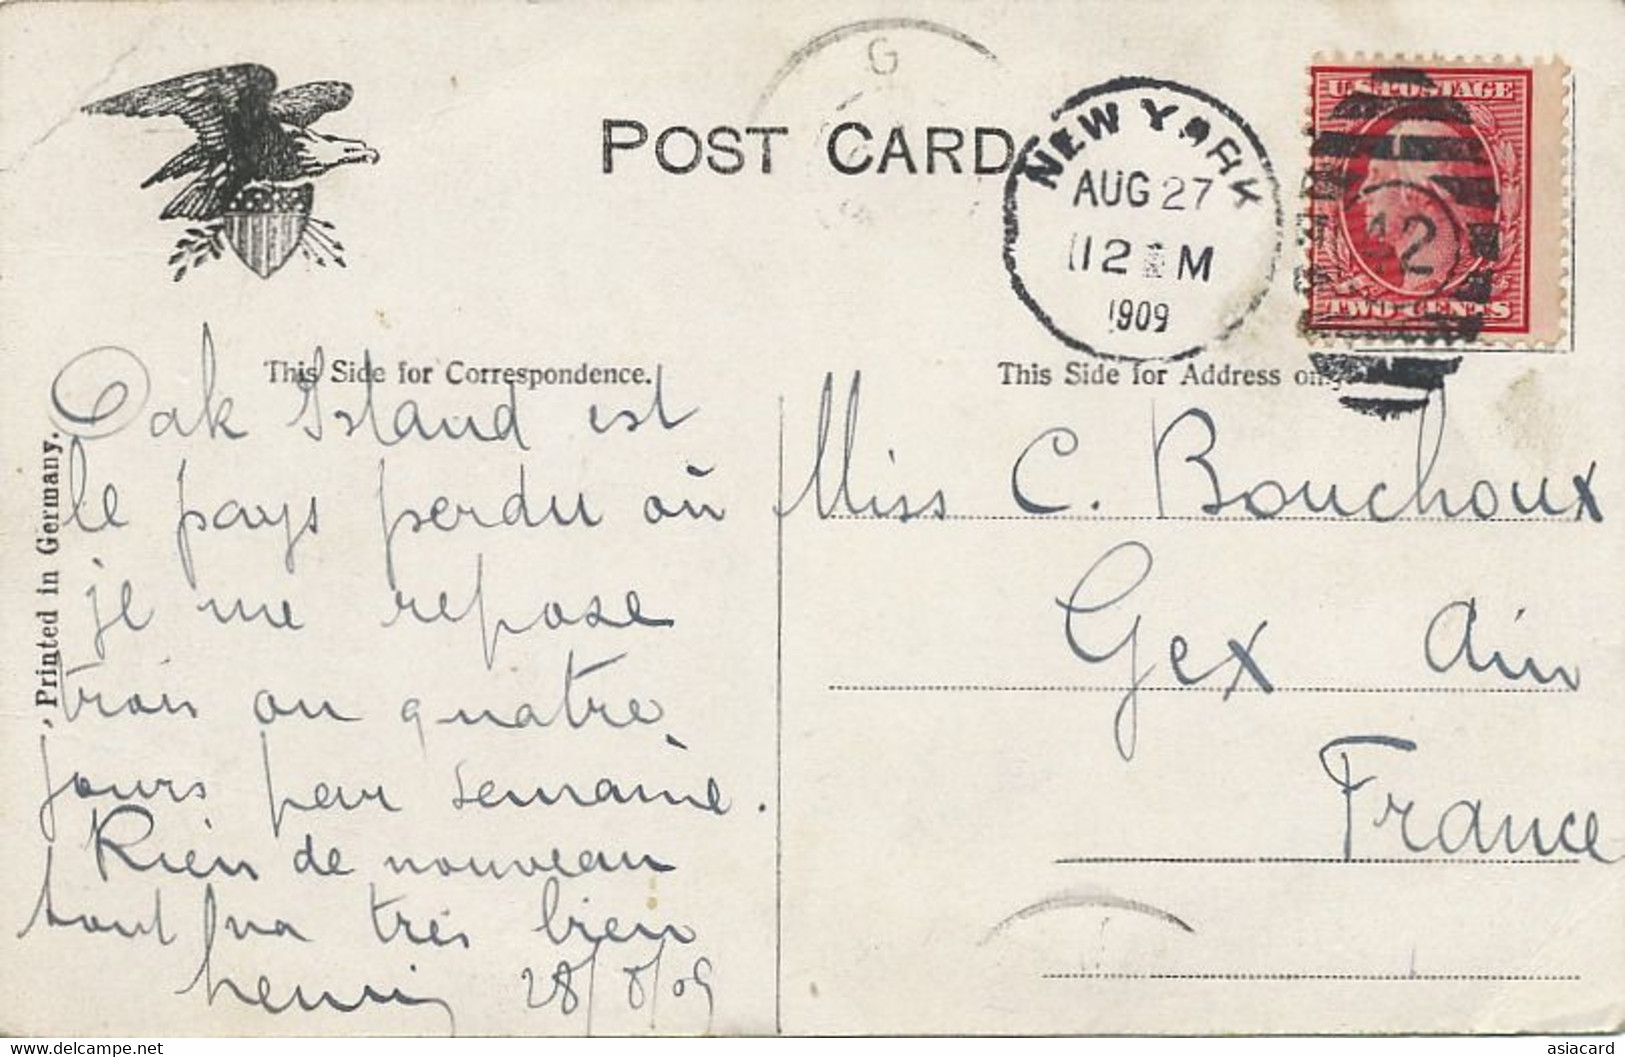 POST CARD
G
NEW YORK
AUG 27
12 M
1909
U.S. POSTAGE
12
TWO CENTS
This Side for Correspondence.
This Side for Address only
, Printed in Germany.
Oak Island est
le pays perdu où
je me repose
trois ou quatre
jours par semaine.
Rien de nouveau
tout va très bien
henri 28/8/09
Miss C. Bouchoux
Gex Ain
France
Delcampe.net
asiacard